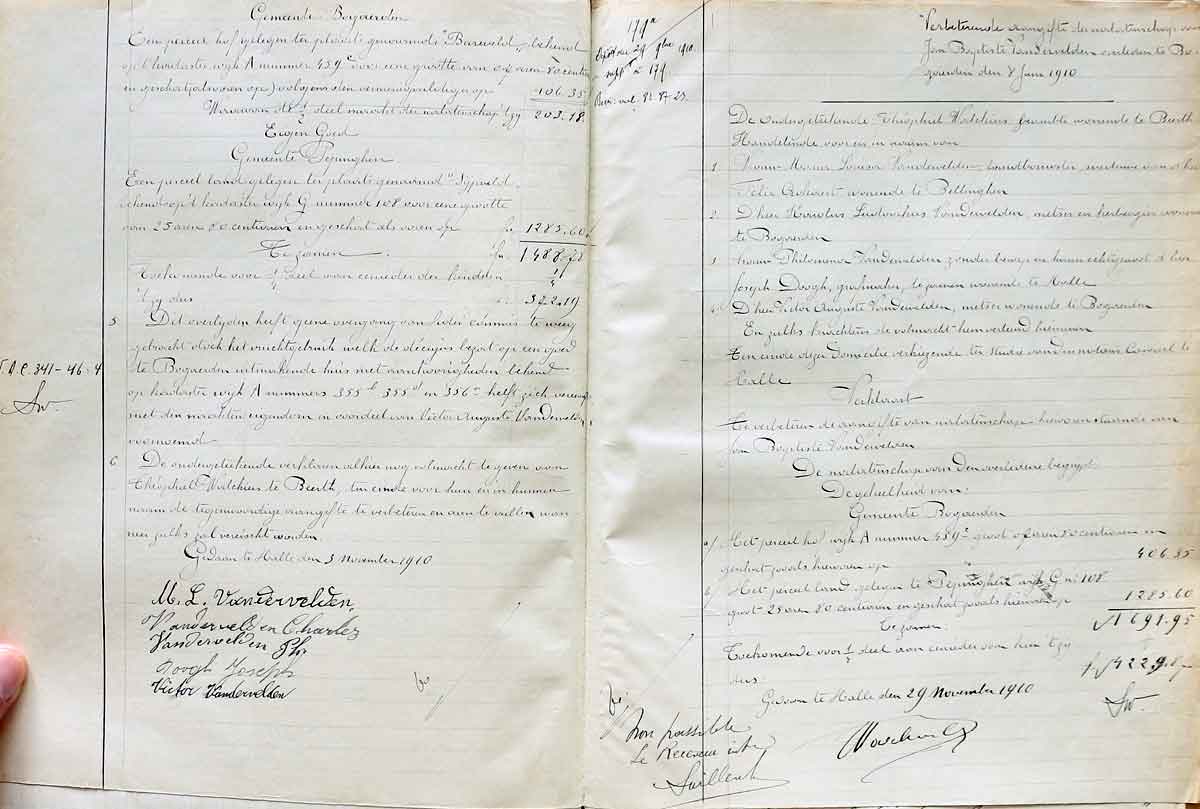 Gemeente Bogaerden
Een perceel hof gelegen ter plaatse genaamd "Bareveld, bekend
op 't kadaster wijk A nummer 459c voor eene grootte van 08 aren 80 centiaren
en geschat volgens den vermenigvuldiger op 406.35
Waarvan de ½ deel maakt der nalatenschap tzy 203.18
Eigen Goed
Gemeente Pepinghen
Een perceel land gelegen ter plaatse genaamd "Nypveld,
bekend op 't kadaster wijk G nummer 108 voor eene grootte
van 25 aren 80 centiaren en geschat als voren op fr 1285.60
Te zamen fr. 1488.78
Toekomende voor ¼ deel aan eenieder der kinderen ¼
't zy dus 372.19
5. Dit overlyden heeft geene overgang van fidei commis te weeg
gebracht doch het vruchtgebruik welk de décujus bezat op een goed
te Bogaerden uitmakende huis met aanhoorigheden bekend
op kadaster wyk A nummers 355 355 en 356 heeft zich vereenigd
met den naakten eigendom in voordeel van Victor Auguste Vandervelden
voornoemd
6 De ondergeteekende verklaren alhier nog volmacht te geven aan
Théophiel Walchiers te Beerth, ten einde voor hun en in hunnen
naam de tegenwoordige aangifte te verbeteren en aan te vullen wan
neer zulks zal vereischt worden.
Gedaan te Halle den 3 November 1910
M. L. Vandervelden
Vandervelden Charles
Vandervelden Ph.
Doogh Joseph
Victor Vandervelden
T.O.C. 341-46-4
179a
29 9bre 1910
suppt à 179
Verbeterende aangifte der nalatenschap van
Jan Baptiste Vandervelden overleden te Bo-
gaerden den 8 Juni 1910
De ondergeteekende Théophiel Walchiers, wonende te Beerth
Handelende voor en in naam van
1. Vrouw Maria Louisa Vandervelden, landbouwster, weduwe van d'heer
Felix wonende te Bellinghen
2. D'heer Karolus Ludovicus Vandervelden, metser en herbergier wonende
te Bogaerden
3. Vrouw Philomena Vandervelden zonder beroep en haren echtgenoot d'heer
Joseph Doogh, te zamen wonende te Halle
4. D'heer Victor Auguste Vandervelden, metser wonende te Bogaerden
En zulks krachtens de volmacht hem verleend hierboven
Ten einde dezer domicilie verkiezende ter studie van den notaris te
Halle
Verklaart
Te verbeteren de aangifte van nalatenschap hiervoren staande van
Jan Baptiste Vandervelden
De nalatenschap van den overledene begrypt
De geheelheid van:
Gemeente Bogaerden
a/ Het perceel hof wyk A nummer 459c groot 08 aren 80 centiaren en
geschat zooals hiervoren op 406.35
b/ Het perceel land gelegen te Pepinghen wyk G no 108
groot 25 aren 80 centiaren en geschat zooals hiervoren op 1285.60
Te zamen: 1691.95
Toekomende voor ¼ deel aan eenieder van hen tzy
dus fr 422.98
Gedaan te Halle den 29 November 1910
Non passible
Le Receveur